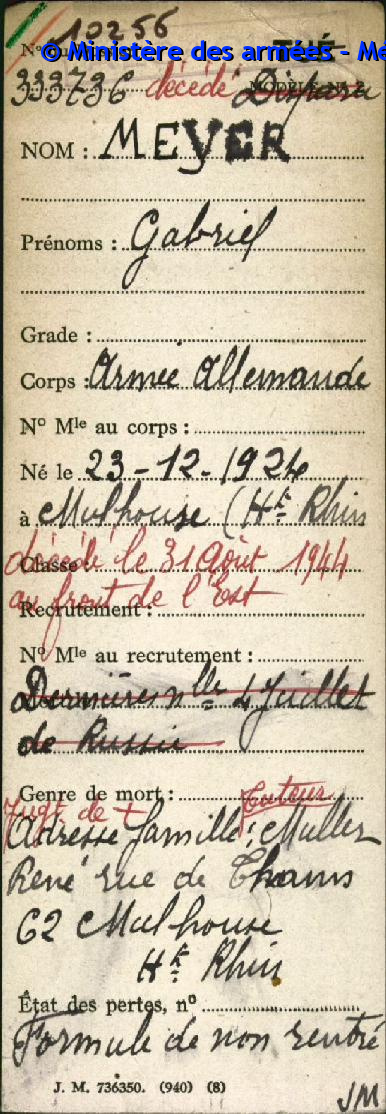 10256
© Ministère des armées - Mé
N°
TUÉ
333736 décédé Disparu
NOM : MEYER
Prénoms : Gabriel
Grade :
Corps : Armée Allemande
N° Mle au corps :
Né le 23-12-1924
à Mulhouse (Ht Rhin
décédé le 31 Août 1944
Classe :
au front de l'Est
Recrutement :
N° Mle au recrutement :
Dernières nlle 4 Juillet
de Russie
Genre de mort : Tuteur
Jugt de +
Adresse famille : Muller
René rue de Thann
62 Mulhouse
Ht Rhin
État des pertes, n°
Formule de non rentré
J. M. 736350. (940) (8)
JM